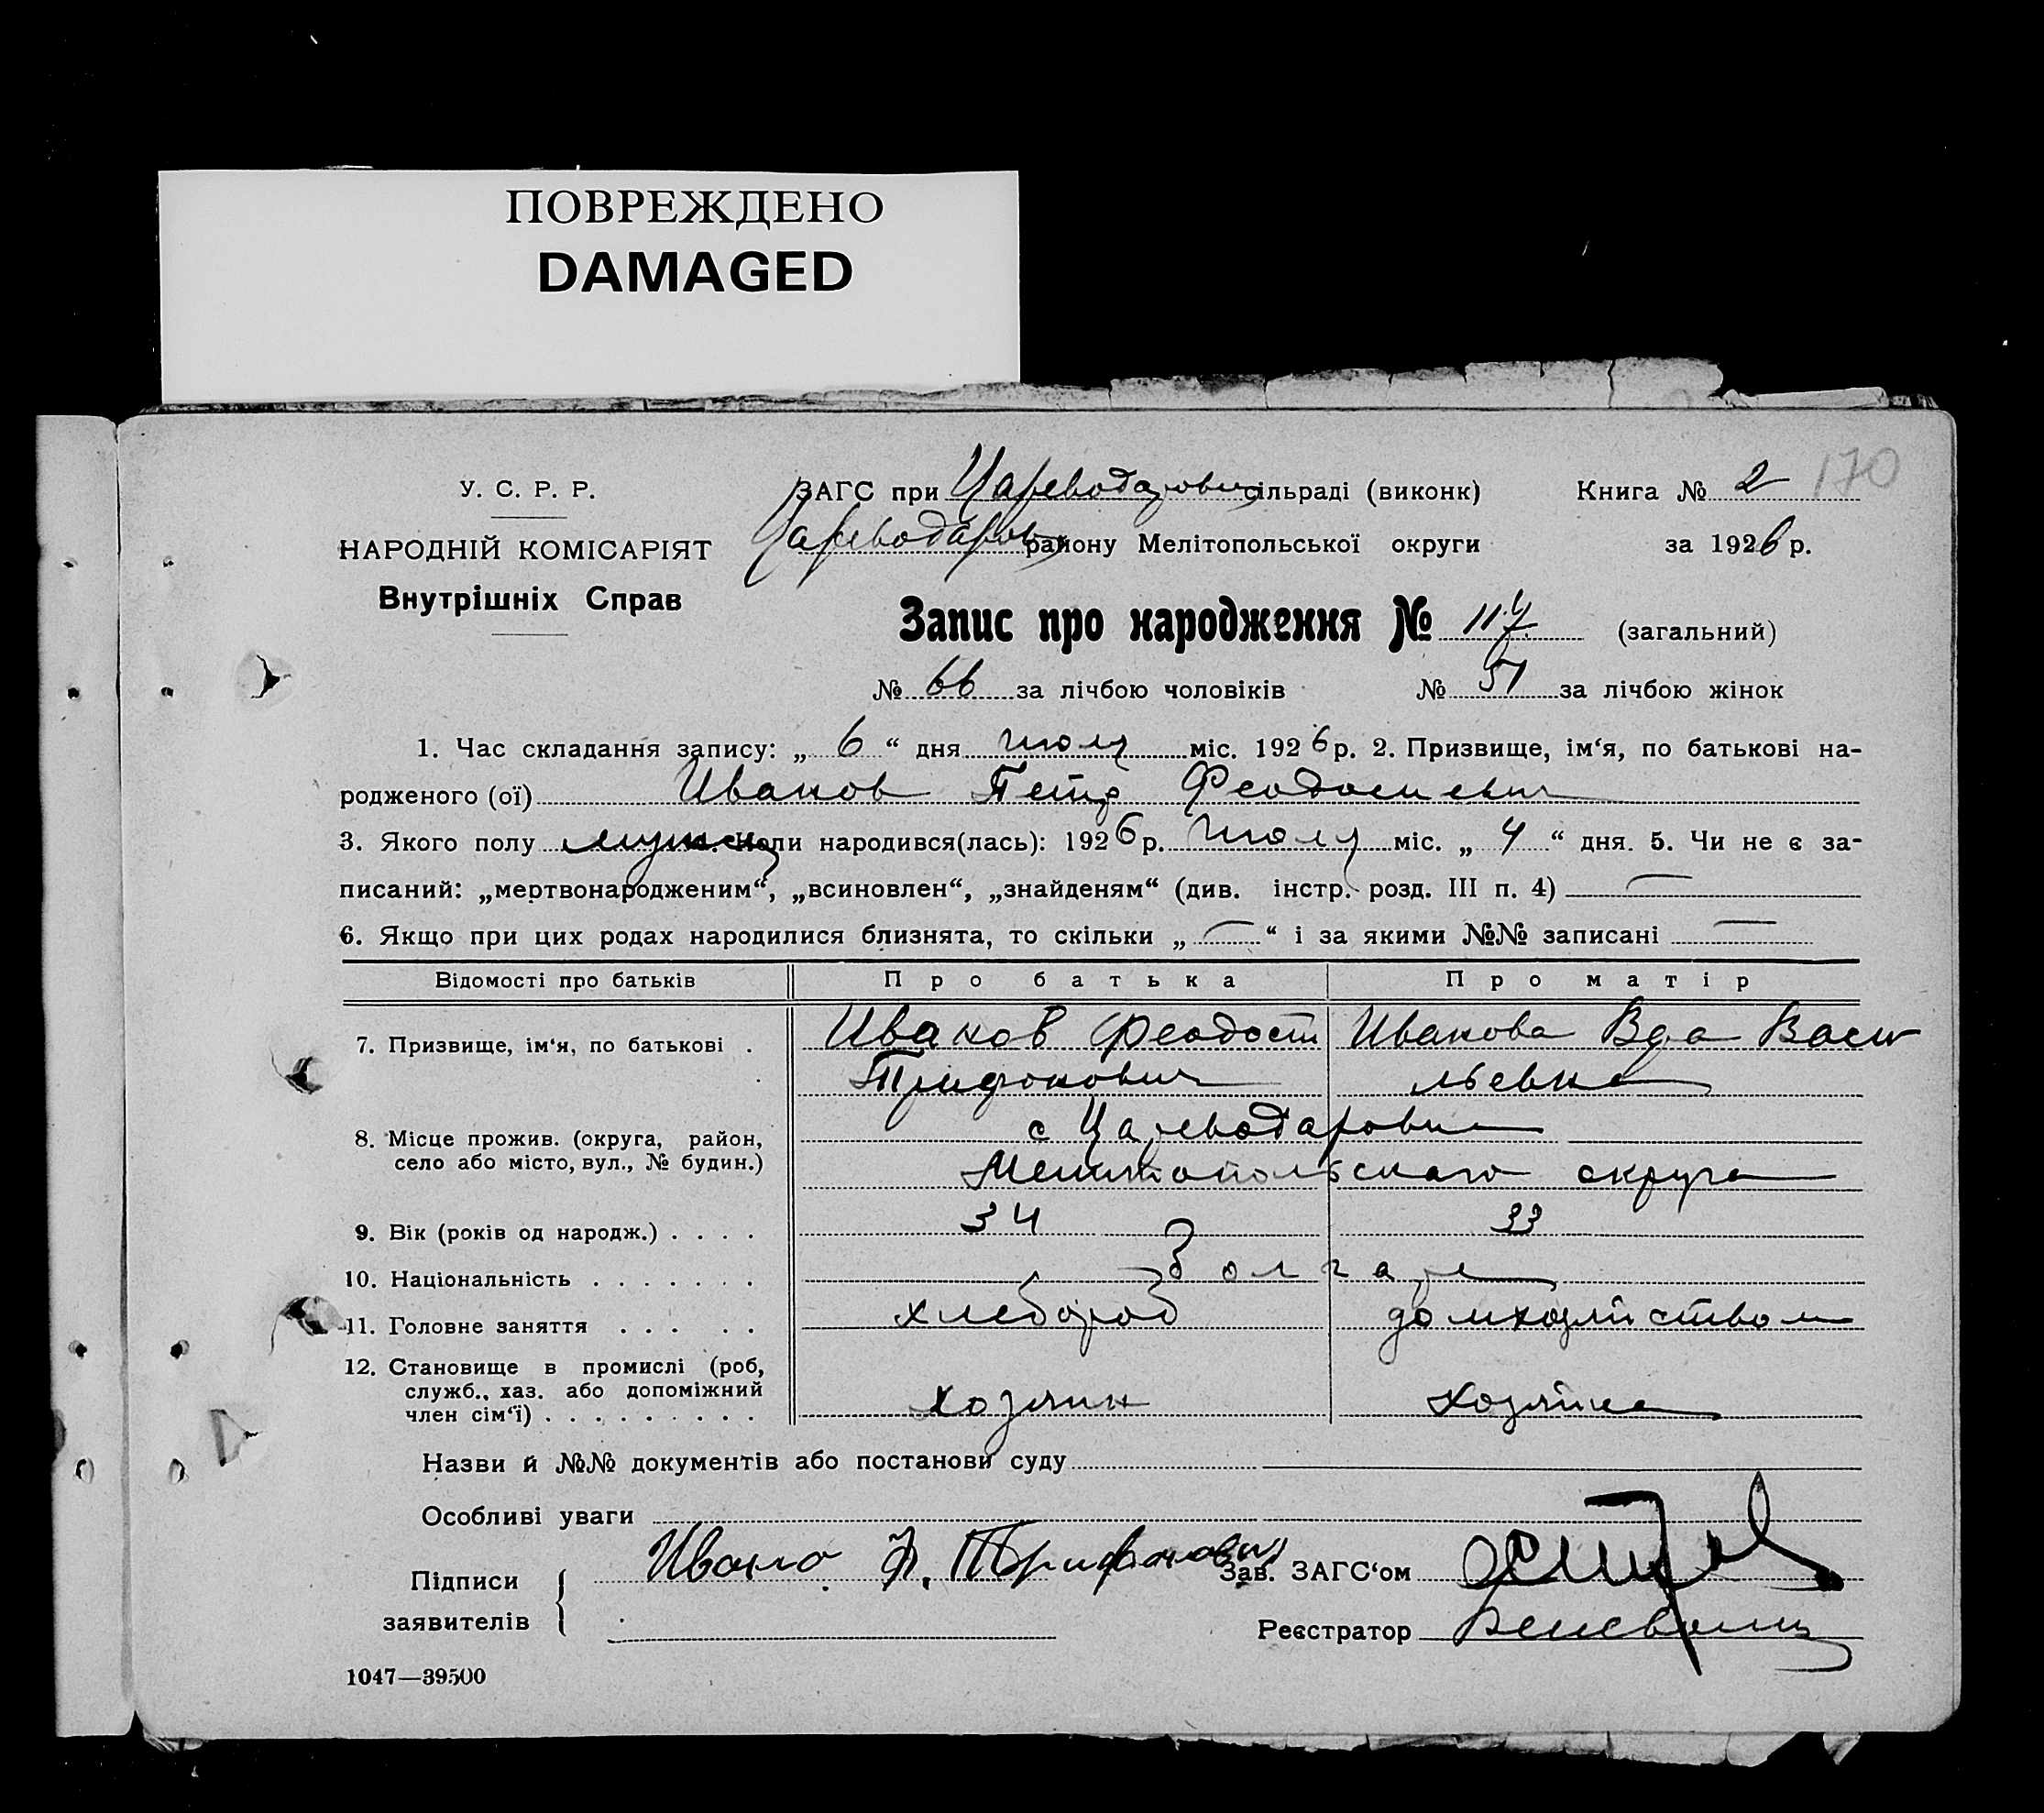 ПОВРЕЖДЕНО
DAMAGED
У. С. Р. Р.
НАРОДНІЙ КОМІСАРІЯТ
Внутрішніх Справ
ЗАГС при Цареводаровк сільраді (виконк) Книга № 2 170
Цареводаров району Мелітопольської округи за 1926 р.
Запис про народження № 117 (загальний)
№ 66 за лічбою чоловіків № 51 за лічбою жінок
1. Час складання запису: „ 6 “ дня июля міс. 1926 р. 2. Призвище, ім‘я, по батькові на-
родженого (ої) Иванов Петр Феодосиевич
3. Якого полу мужск 4. Коли народився(лась): 1926 р. июля міс. „ 4 “ дня. 5. Чи не є за-
писаний: „мертвонародженим“, „всиновлен“, „знайденям“ (див. інстр. розд. III п. 4) —
6. Якщо при цих родах народилися близнята, то скільки „ — “ і за якими №№ записані —
Відомості про батьків Про батька Про матір
7. Призвище, ім‘я, по батькові . Иванов Феодост Иванова Васи
Трифонович льевна
8. Місце прожив. (округа, район, с Цареводаровка
село або місто, вул., № будин.) Мелитопольскаго округа
9. Вік (років од народж.) . . . . 34 33
10. Національність . . . . . . . болгаре
11. Головне заняття . . . . . хлебороб домхозяйством
12. Становище в промислі (роб,
служб., хаз. або допоміжний
член сім‘ї) . . . . . . . . . хозяин хозяйка
Назви й №№ документів або постанови суду
Особливі уваги
Підписи Ивано Ф. Трифонович Зав. ЗАГС‘ом
заявителів Реєстратор
1047—39500